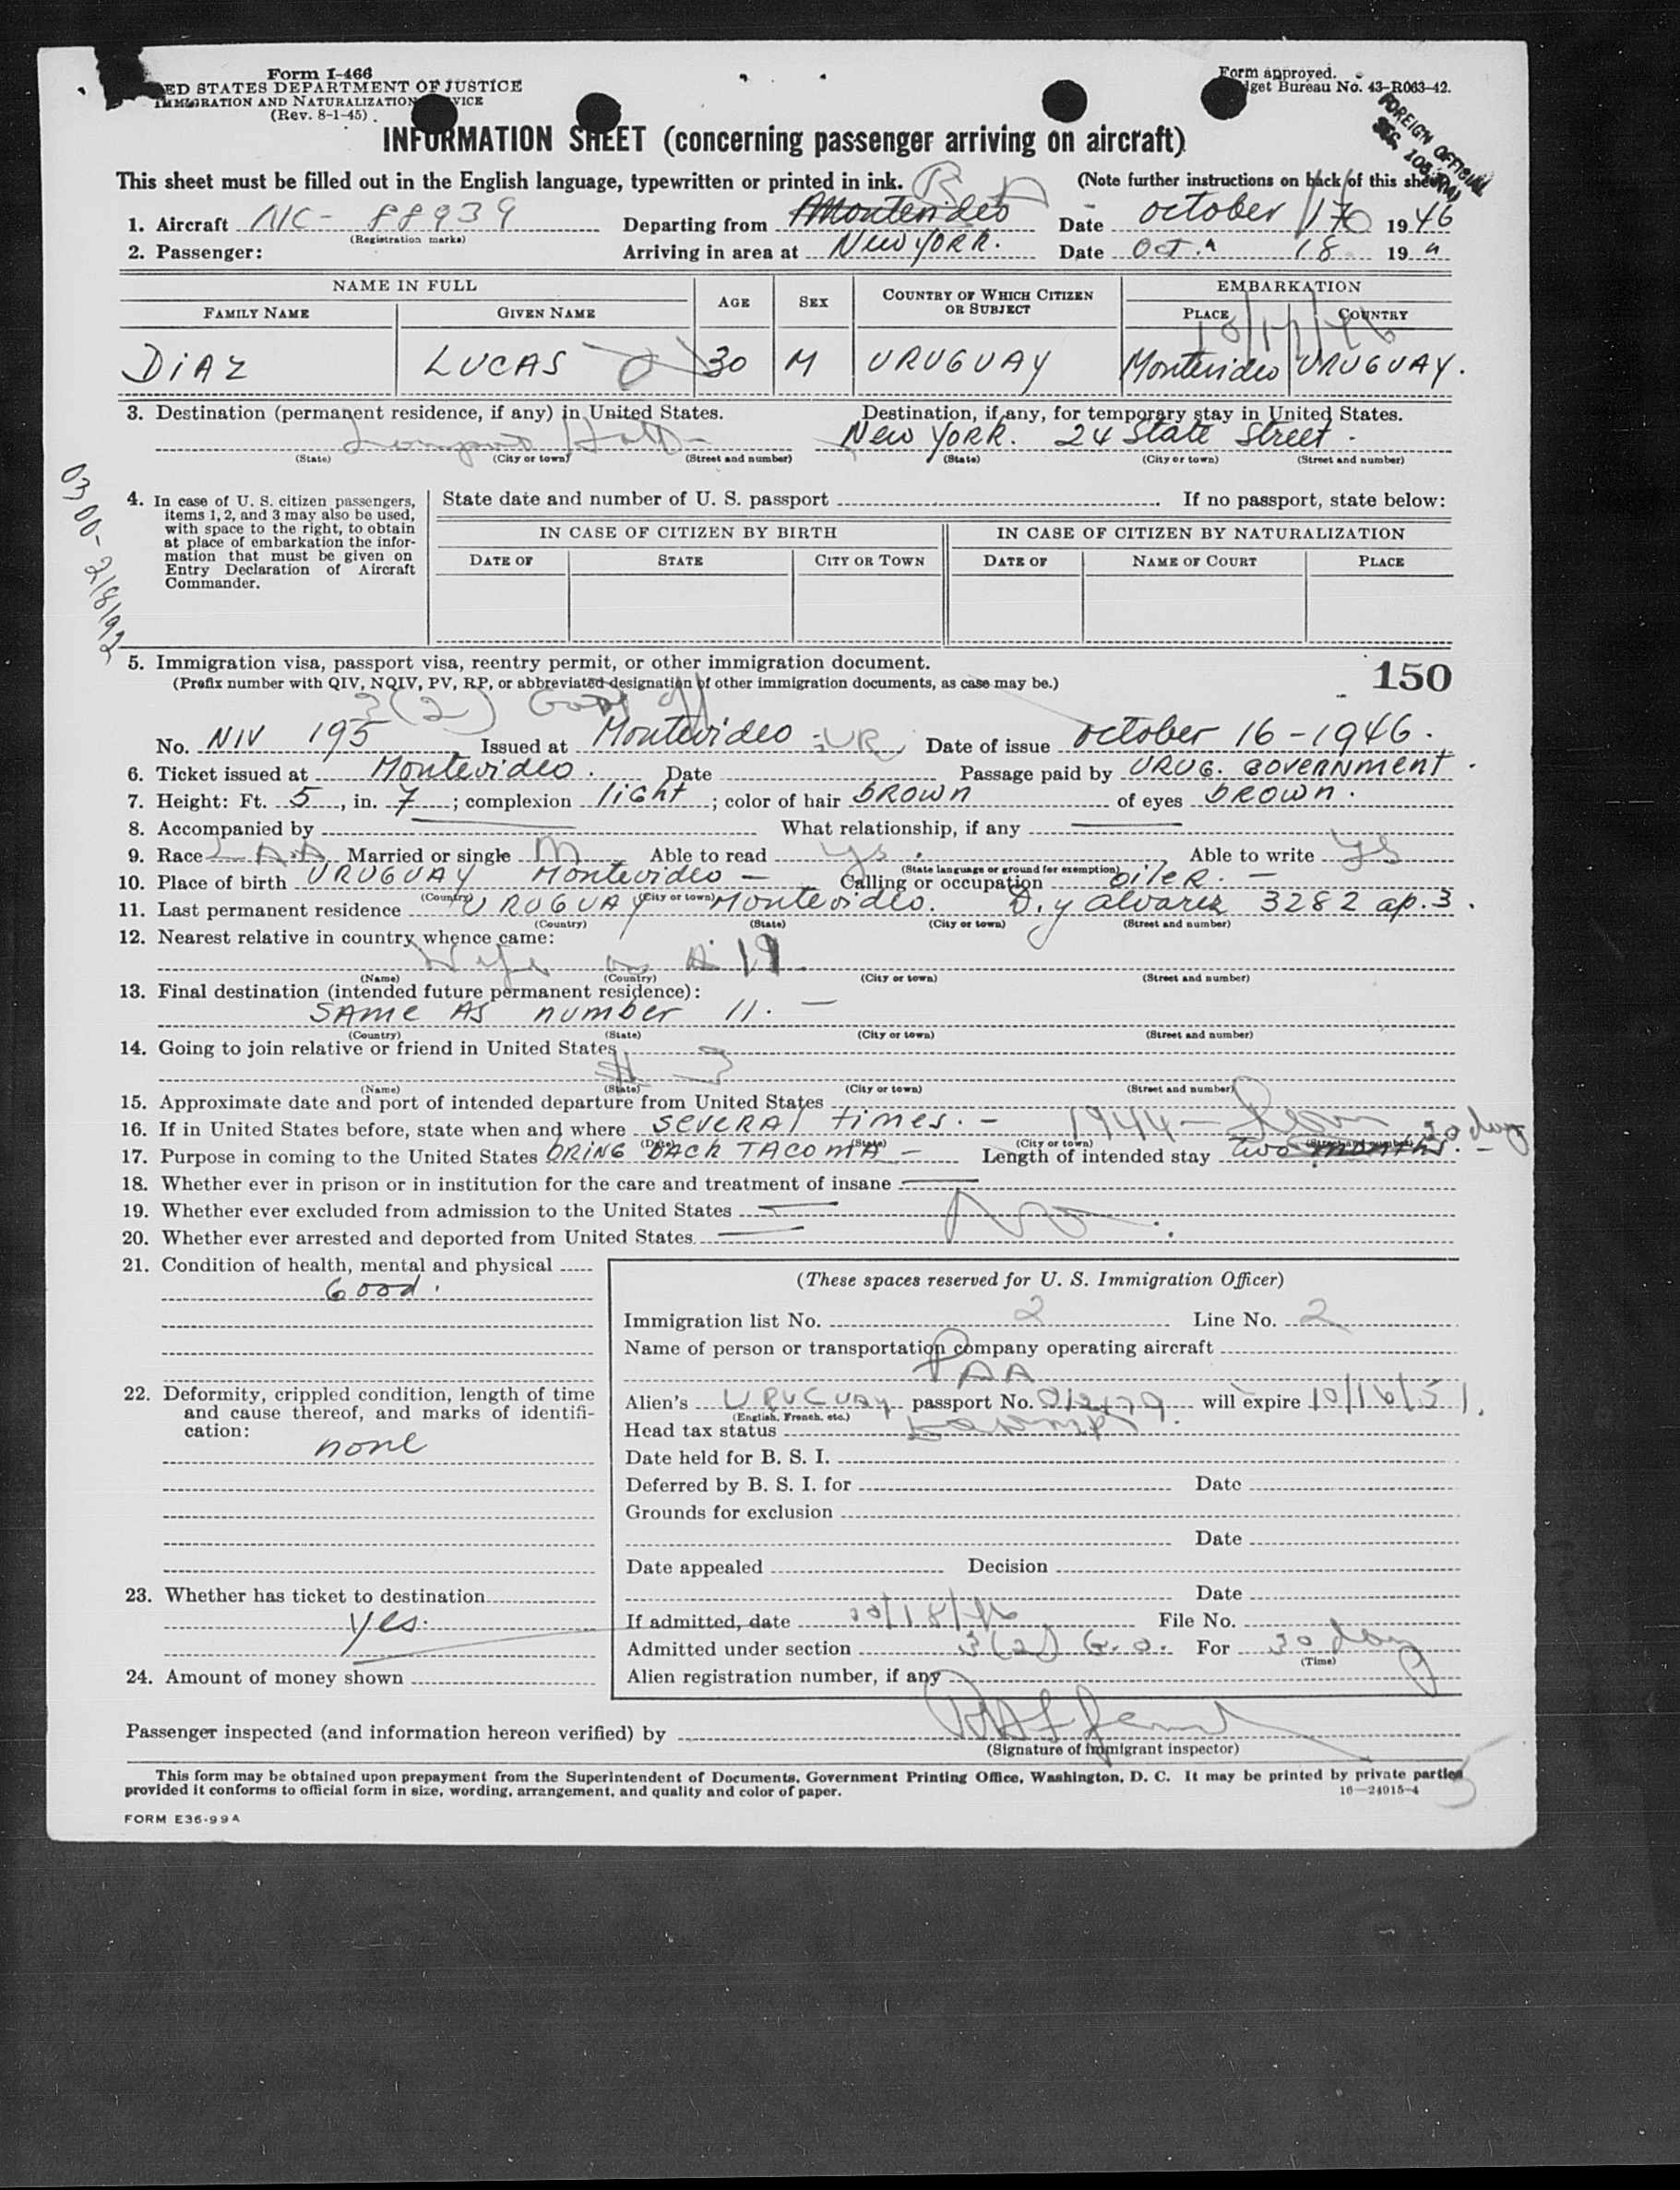 Form I-466
ED STATES DEPARTMENT OF JUSTICE
IMMIGRATION AND NATURALIZATION VICE
(Rev. 8-1-45)
Form approved.
dget Bureau No. 43-R063-42.
FOREIGN OFFICIAL
INFORMATION SHEET (concerning passenger arriving on aircraft)
This sheet must be filled out in the English language, typewritten or printed in ink. (Note further instructions on back of this sheet)
1. Aircraft NC- 88939 Departing from Montevideo Date october 17 1946
(Registration marks)
2. Passenger: Arriving in area at New YORK. Date OCT. 18 19 "
NAME IN FULL AGE SEX COUNTRY OF WHICH CITIZEN OR SUBJECT EMBARKATION
FAMILY NAME GIVEN NAME PLACE COUNTRY
10/17/46
DiAZ LUCAS 30 M URUGUAY Montevideo URUGUAY.
3. Destination (permanent residence, if any) in United States. Destination, if any, for temporary stay in United States.
New YORK. 24 State Street -
(State) (City or town) (Street and number) (State) (City or town) (Street and number)
0300-2/8/92
4. In case of U. S. citizen passengers, items 1, 2, and 3 may also be used, with space to the right, to obtain at place of embarkation the information that must be given on Entry Declaration of Aircraft Commander.
State date and number of U. S. passport If no passport, state below:
IN CASE OF CITIZEN BY BIRTH IN CASE OF CITIZEN BY NATURALIZATION
DATE OF STATE CITY OR TOWN DATE OF NAME OF COURT PLACE
5. Immigration visa, passport visa, reentry permit, or other immigration document. 150
(Prefix number with QIV, NQIV, PV, RP, or abbreviated designation of other immigration documents, as case may be.)
3(2)
No. NIV 195 Issued at Montevideo - UR Date of issue october 16-1946.
6. Ticket issued at Montevideo. Date Passage paid by URUG. GOVERNMENT.
7. Height: Ft. 5, in. 7; complexion light; color of hair BROWN of eyes BROWN.
8. Accompanied by — What relationship, if any —
9. Race Married or single M Able to read yes. Able to write yes
(State language or ground for exemption)
10. Place of birth URUGUAY Montevideo - Calling or occupation oiler. -
(Country) (City or town)
11. Last permanent residence URUGUAY Montevideo. D. y alvarez 3282 ap.3.
(Country) (State) (City or town) (Street and number)
12. Nearest relative in country whence came:
Wife
(Name) (Country) (City or town) (Street and number)
13. Final destination (intended future permanent residence):
SAME AS number 11. -
(Country) (State) (City or town) (Street and number)
14. Going to join relative or friend in United States
# 3
(Name) (State) (City or town) (Street and number)
15. Approximate date and port of intended departure from United States
16. If in United States before, state when and where SEVERAL times. - 1944 -
(Date) (State) (City or town) (Street and number)
17. Purpose in coming to the United States BRING BACK TACOMA - Length of intended stay two months. - 30 days
18. Whether ever in prison or in institution for the care and treatment of insane —
19. Whether ever excluded from admission to the United States — No.
20. Whether ever arrested and deported from United States —
21. Condition of health, mental and physical
Good.
22. Deformity, crippled condition, length of time and cause thereof, and marks of identification:
none
23. Whether has ticket to destination
yes.
24. Amount of money shown
(These spaces reserved for U. S. Immigration Officer)
Immigration list No. 2 Line No. 2
Name of person or transportation company operating aircraft
PAA
Alien's URUGUAY passport No. will expire 10/16/51.
(English, French, etc.)
Head tax status
Date held for B. S. I.
Deferred by B. S. I. for Date
Grounds for exclusion
Date
Date appealed Decision
Date
If admitted, date 10/18/46 File No.
Admitted under section 3(2) G.O. For 30 days
(Time)
Alien registration number, if any
Passenger inspected (and information hereon verified) by
(Signature of immigrant inspector)
This form may be obtained upon prepayment from the Superintendent of Documents, Government Printing Office, Washington, D. C. It may be printed by private parties
provided it conforms to official form in size, wording, arrangement, and quality and color of paper. 16—24015-4
FORM E36-99A